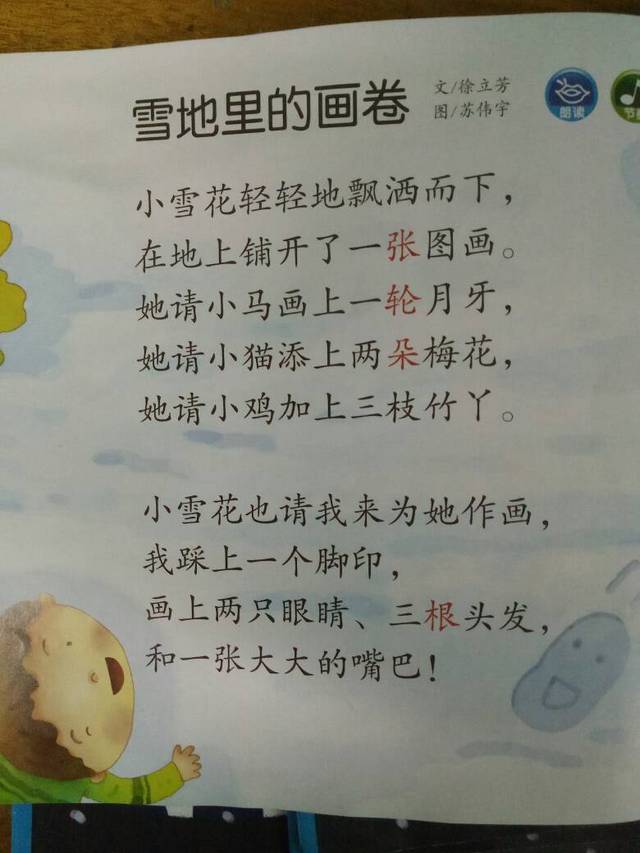 雪地里的画卷
文/徐立芳
图/苏伟宇
朗读
小雪花轻轻地飘洒而下，
在地上铺开了一张图画。
她请小马画上一轮月牙，
她请小猫添上两朵梅花，
她请小鸡加上三枝竹丫。
小雪花也请我来为她作画，
我踩上一个脚印，
画上两只眼睛、三根头发，
和一张大大的嘴巴！